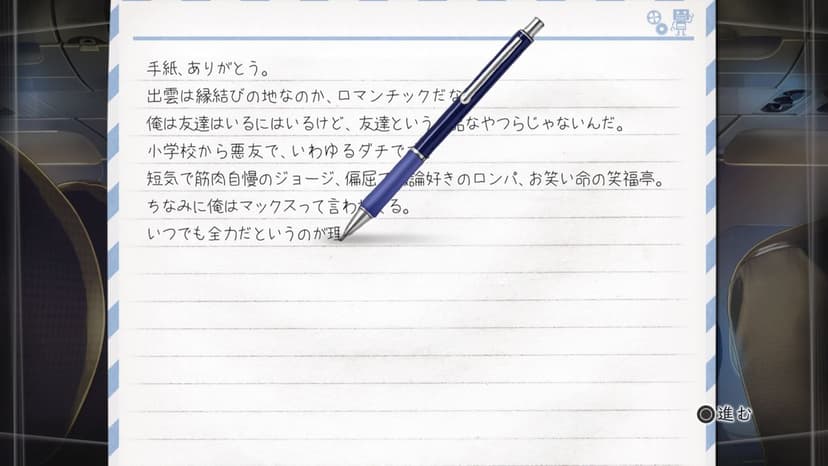 手紙、ありがとう。
出雲は縁結びの地なのか、ロマンチックだな
俺は友達はいるにはいるけど、友達という なやつらじゃないんだ。
小学校から悪友で、いわゆるダチで
短気で筋肉自慢のジョージ、偏屈で 論好きのロンパ、お笑い命の笑福亭。
ちなみに俺はマックスって言われ る。
いつでも全力だというのが理
進む